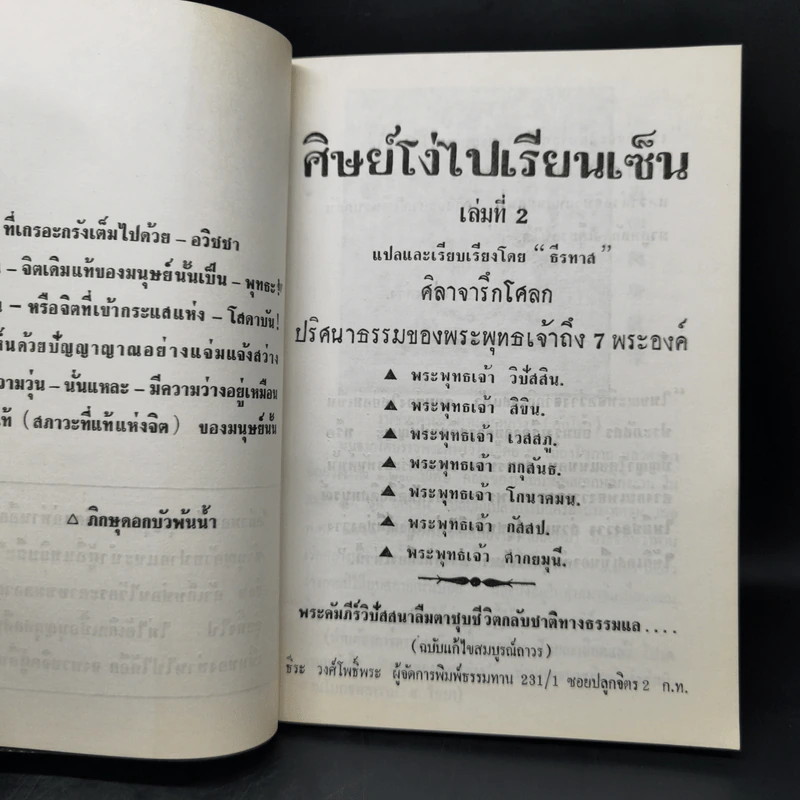 ที่เกรอะกรังเต็มไปด้วย – อวิชชา
– จิตเดิมแท้ของมนุษย์นั้นเป็น – พุทธะ!
– หรือจิตที่เข้ากระแสแห่ง – โสดาบัน!
ด้วยปัญญาญาณอย่างแจ่มแจ้งสว่าง
– นั้นแหละ – มีความว่างอยู่เหมือน
(สภาวะที่แท้แห่งจิต) ของมนุษย์นั้น
△ ภิกษุดอกบัวพันน้ำ
ศิษย์โง่ไปเรียนเซ็น
เล่มที่ 2
แปลและเรียบเรียงโดย “ธีรทาส”
ศิลาจารึกโศลก
ปริศนาธรรมของพระพุทธเจ้าถึง 7 พระองค์
▲ พระพุทธเจ้า วิปัสสิน.
▲ พระพุทธเจ้า สิขิน.
▲ พระพุทธเจ้า เวสสภู.
▲ พระพุทธเจ้า กกุสันธ.
▲ พระพุทธเจ้า โกนาคมน.
▲ พระพุทธเจ้า กัสสป.
▲ พระพุทธเจ้า ศากยมุนี.
พระคัมภีร์วิปัสสนาลืมตาชุบชีวิตกลับชาติทางธรรมแล....
(ฉบับแก้ไขสมบูรณ์ถาวร)
ธีระ วงศ์โพธิ์พระ ผู้จัดการพิมพ์ธรรมทาน 231/1 ซอยปลูกจิตร 2 ก.ท.